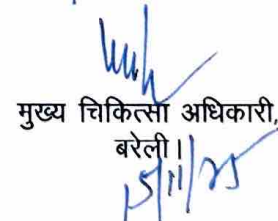 मुख्य चिकित्सा अधिकारी,
बरेली।
15/11/25